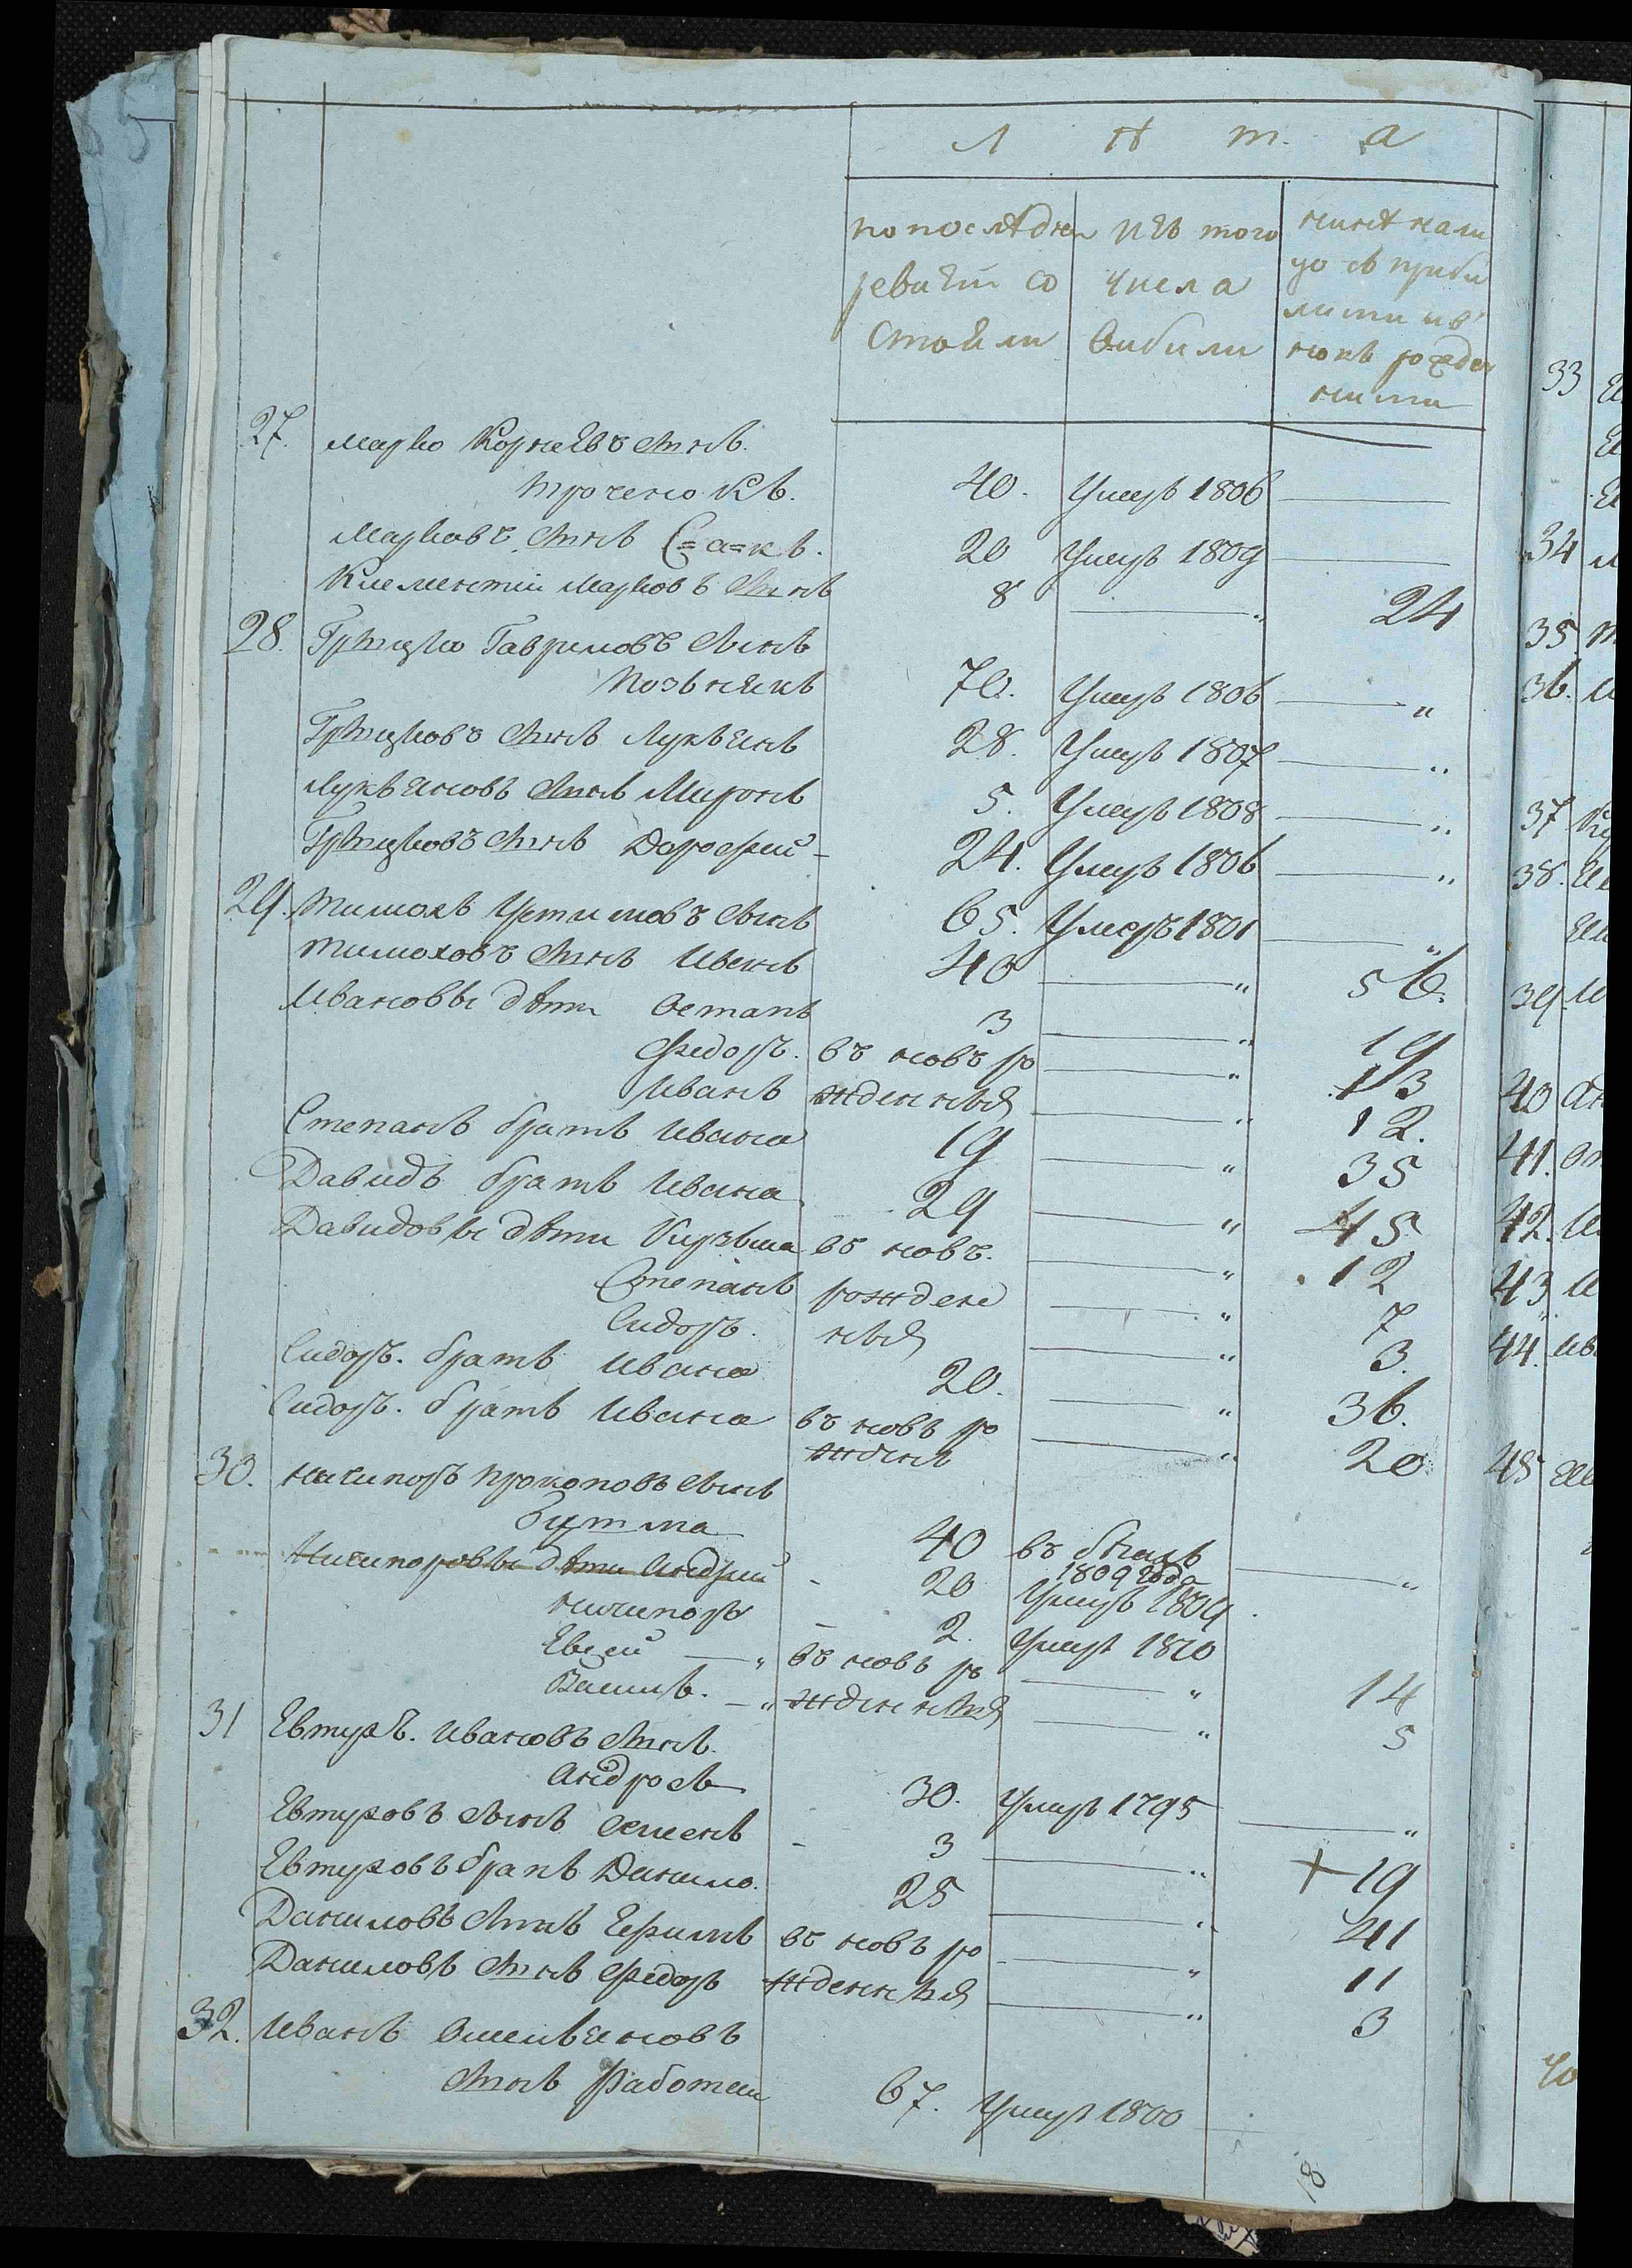 Л ѣ т а
по последней ревизіи состояли
изъ того числа выбыли
ныне налицо съ прибилими и вновь рожденними
27. Марко Корнѣевъ синъ
Троченокъ. 40. Умеръ 1806
Марковъ синъ Исакъ. 20 Умеръ 1809
Клементий Марковъ синъ 8 24
28. Грицко Гавриловъ синъ
Позьнякъ 70. Умеръ 1806
Грицковъ синъ Лукъянъ 28. Умеръ 1807
Лукъяновъ синъ Миронъ 5. Умеръ 1808
Грицковъ синъ Дорофей 24. Умеръ 1806
29. Тимохъ Устимовъ синъ 65. Умеръ 1801
Тимоховъ синъ Иванъ 40 56.
Ивановы дѣти Остапъ 3 19
Федоръ. въ новъ ро 13
Иванъ жденння 12.
Степанъ братъ Ивана 19 35
Давидъ братъ Ивана 29 45
Давидовы дѣти Кузьма въ новъ. 12
Степанъ рожден 7
Сидоръ. ния 3.
Сидоръ. братъ Ивана 20. 36.
Сидоръ. братъ Ивана въ новъ ро
жденъ 20
30. Ничипоръ Прокоповъ синъ
40 въ
1809 года
Ничипоровы дѣти Андрей 20 Умеръ 1809
Ничипоръ 2. Умеръ 1810
Евсей въ новъ ро 14
Василь. жденния 5
31 Евтухъ. Ивановъ синъ.
30. Умеръ 1795
Евтуховъ синъ Семенъ 3 19
Евтуховъ братъ Данило. 25 41
Даниловъ синъ Ефимъ въ новъ ро 11
Даниловъ синъ Федоръ жденния 3
32. Иванъ Омельяновъ
синъ 67. Умеръ 1800
18
33
34
35
36.
37
38.
39
40
41.
42.
43
44.
45